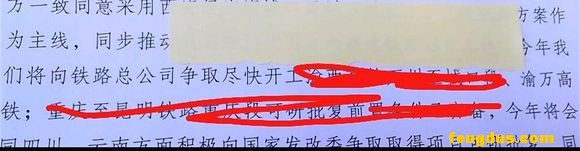 方一致同意采用西 方案作
为主线，同步推动 今年我
们将向铁路总公司争取尽快开工渝西 、渝万高
铁；重庆至昆明铁路重庆段可研批复前置条件 备，今年将会
同四川、云南方面积极向国家发改委争取取得项 同
fengdus.com